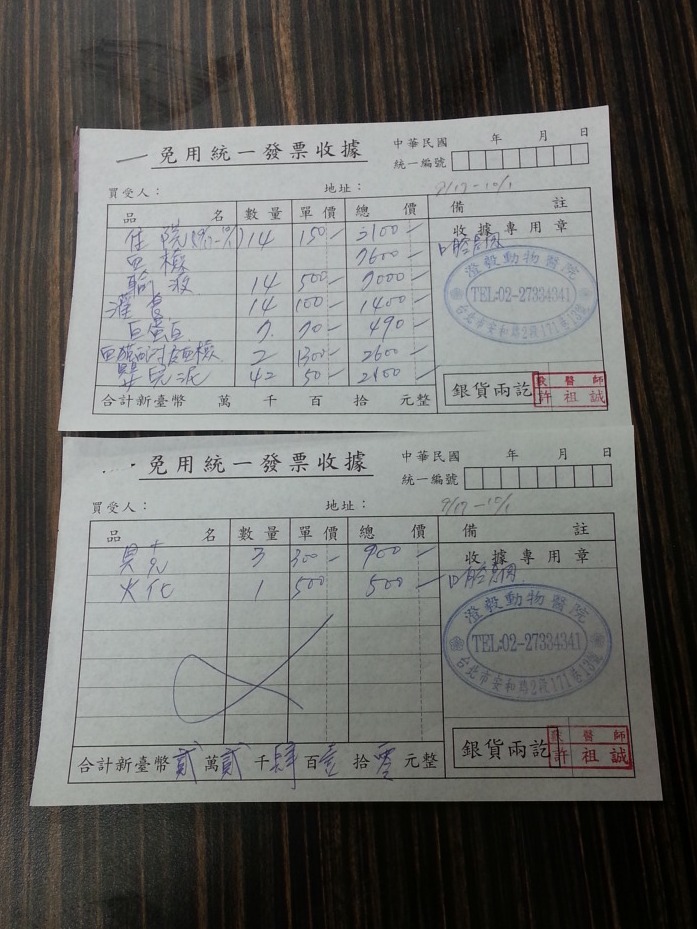 免用統一發票收據
中華民國 年 月 日
統一編號
買受人: 地址: 9/17-10/1
品 名 數量 單價 總 價 備 註
住院(9/17-10/1) 14 150- 2100- 收據專用章
血檢 7600-
輸液 14 500- 7000-
灌食 14 100- 1400-
白蛋白 7 70- 490-
2 1300- 2600-
42 50- 2100-
澄毅動物醫院
TEL:02-27334341
台北市安和路2段171巷
合計新臺幣 萬 千 百 拾 元整 銀貨兩訖
獸醫師
許祖誠
免用統一發票收據
中華民國 年 月 日
統一編號
買受人: 地址: 9/17-10/1
品 名 數量 單價 總 價 備 註
3 300- 900- 收據專用章
火化 1 500 500-
澄毅動物醫院
TEL:02-27334341
台北市安和路2段171巷
合計新臺幣貳萬貳千肆百壹拾零元整 銀貨兩訖
獸醫師
許祖誠